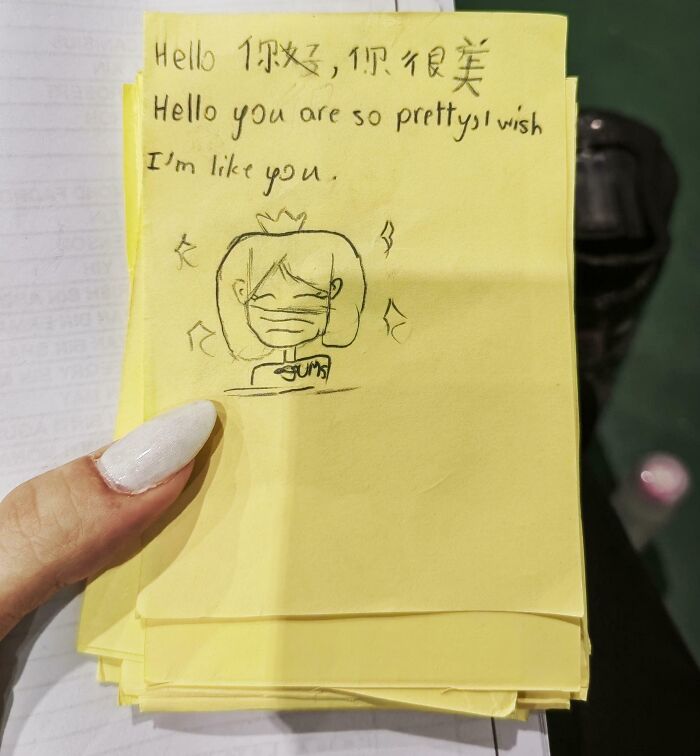 Hello 你好,你很美
Hello you are so pretty, I wish
I'm like you.